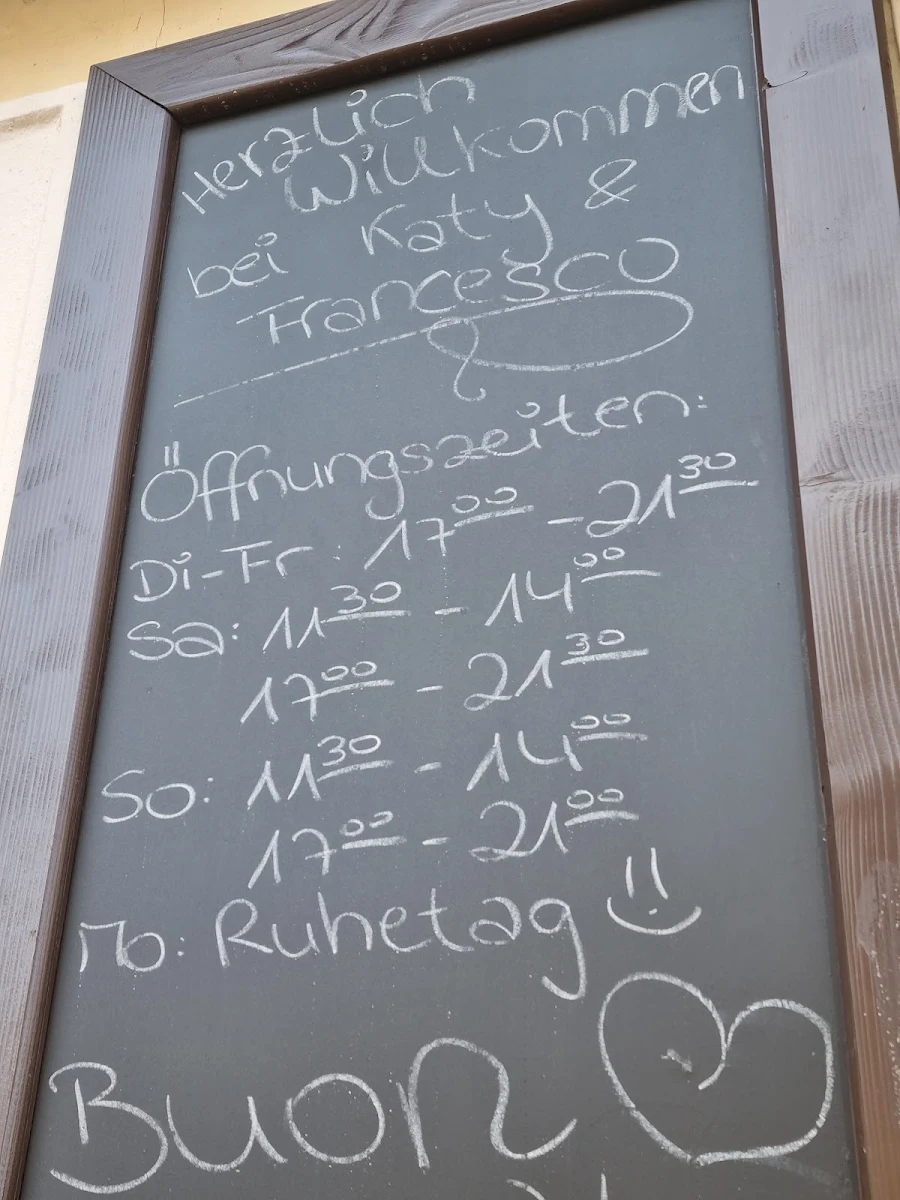 Herzlich
Willkommen
bei Katy &
Francesco
Öffnungszeiten:
Di-Fr: 17⁰⁰ - 21³⁰
Sa: 11³⁰ - 14⁰⁰
17⁰⁰ - 21³⁰
So: 11³⁰ - 14⁰⁰
17⁰⁰ - 21⁰⁰
Mo: Ruhetag
Buon